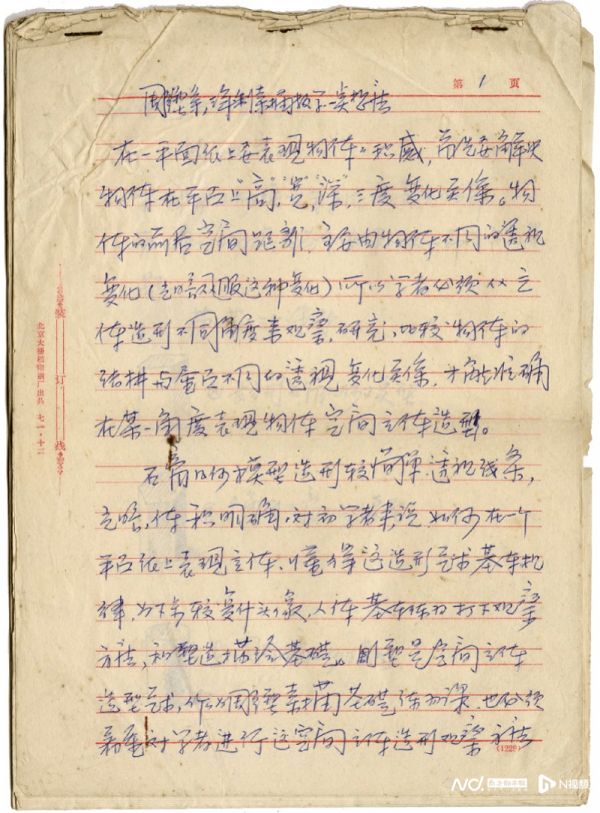 第 1 页
在一平面纸上要表现物体的体积感，首先要解决
物体在平面上"高"，"宽"，"深"，三度变化关系。物
体的前后空间距离，主要由物体不同的透视
变化（光暗服这种变化）所以学者必须从立
体造型不同角度来观察，研究，比较物体的
结构与画面不同的透视变化关系，才能准确
在某一角度表现物体空间立体造型。
石膏几何模型造型较简单透视线条，
光暗，体积明确，对初学者来说如何在一个
平面纸上表现立体，懂得这造形艺术基本规
律，为下步较复什头像，人体基本练习打下观察
方法，和塑造描绘基础。雕塑是空间立体
造型艺术，作为雕塑素描基础练习课，也必须
着重对学者进行这空间立体造形观察方法
装
订
线
北京大栅栏印刷厂出品 七一·十二
(1229)
N视频